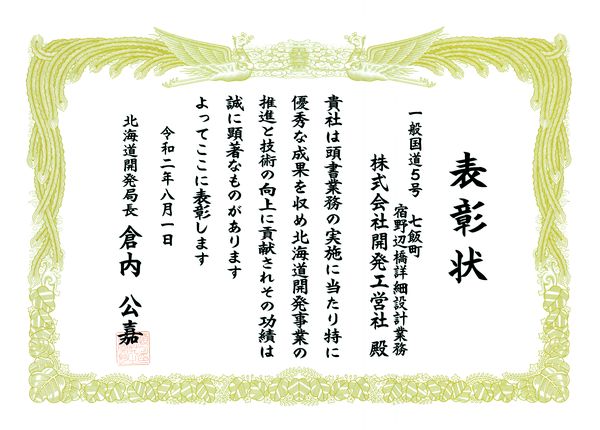 表彰状
一般国道5号 七飯町
宿野辺橋詳細設計業務
株式会社開発工営社 殿
貴社は頭書業務の実施に当たり特に
優秀な成果を収め北海道開発事業の
推進と技術の向上に貢献されその功績は
誠に顕著なものがあります
よってここに表彰します
令和二年八月一日
北海道開発局長 倉内 公嘉